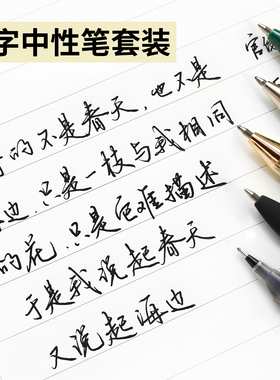 字中性笔套装
的又是春天,也不是
边.只是一枝与我相同
的花.只是它难描述
于是我说起春天
又说起海边